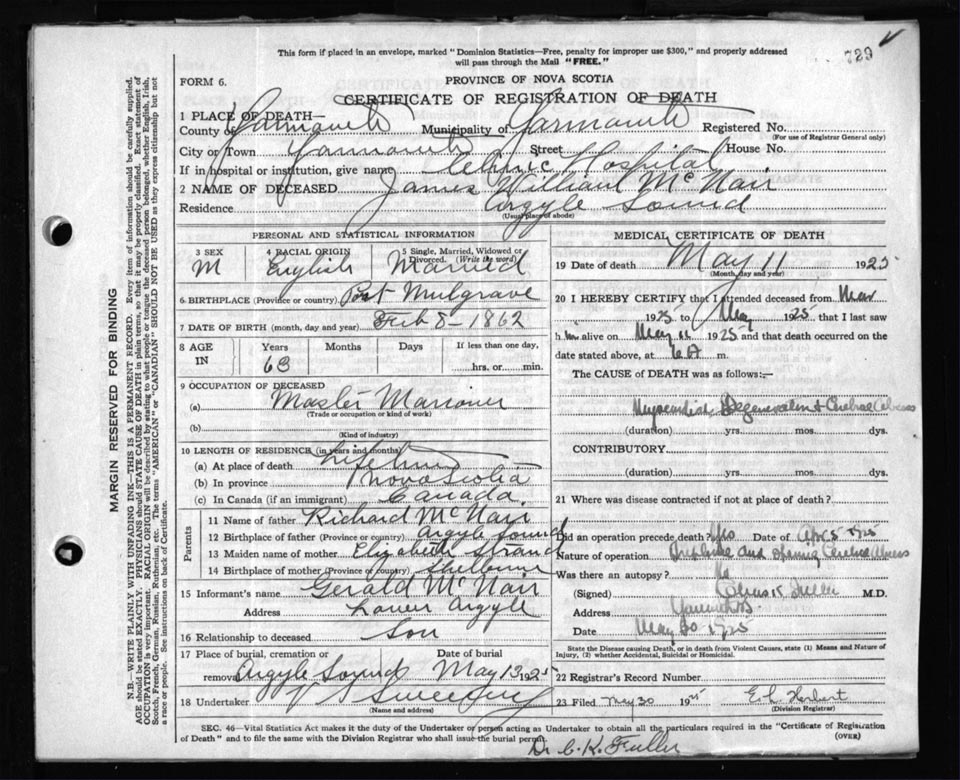 This form if placed in an envelope, marked "Dominion Statistics—Free, penalty for improper use $300," and properly addressed
will pass through the Mail "FREE."
729
FORM 6.
PROVINCE OF NOVA SCOTIA
CERTIFICATE OF REGISTRATION OF DEATH
1 PLACE OF DEATH—
County of Yarmouth Municipality of Yarmouth Registered No.
(For use of Registrar General only)
City or Town Yarmouth Street House No.
If in hospital or institution, give name Clinic Hospital
2 NAME OF DECEASED James William McNair
Residence Argyle Sound
(Usual place of abode)
PERSONAL AND STATISTICAL INFORMATION
3 SEX M
4 RACIAL ORIGIN English
5 Single, Married, Widowed or Divorced. (Write the word) Married
6 BIRTHPLACE (Province or country) Port Mulgrave
7 DATE OF BIRTH (month, day and year) Feb 8-1862
8 AGE IN Years 63 Months Days If less than one day, hrs. or min.
9 OCCUPATION OF DECEASED
(a) Master Mariner
(Trade or occupation or kind of work)
(b)
(Kind of industry)
10 LENGTH OF RESIDENCE (in years and months)
(a) At place of death Life time
(b) In province Nova Scotia
(c) In Canada (if an immigrant) Canada.
Parents
11 Name of father Richard McNair
12 Birthplace of father (Province or country) Argyle Sound
13 Maiden name of mother Elizabeth
14 Birthplace of mother (Province or country) Shelburne
15 Informant's name Gerald McNair
Address Lower Argyle
16 Relationship to deceased Son
17 Place of burial, cremation or removal Argyle Sound
Date of burial May 13 1925
18 Undertaker V S Sweeney
(Name and address)
MEDICAL CERTIFICATE OF DEATH
19 Date of death May 11 1925
(Month, day and year)
20 I HEREBY CERTIFY that I attended deceased from Mar
1925 to May 1925, that I last saw
h im alive on May 11 1925 and that death occurred on the
date stated above, at 6 A m.
The CAUSE of DEATH was as follows:—
Degeneration & Cerebral Abscess
(duration) yrs. mos. dys.
CONTRIBUTORY
(duration) yrs. mos. dys.
21 Where was disease contracted if not at place of death?
Did an operation precede death? Yes Date of Apr 5 1925
Nature of operation and Opening Cerebral Abscess
Was there an autopsy? No
(Signed) Fuller M.D.
Address Yarmouth N.S.
Date May 30 1925
State the Disease causing Death, or in death from Violent Causes, state (1) Means and Nature of
Injury, (2) whether Accidental, Suicidal or Homicidal.
22 Registrar's Record Number
23 Filed May 30 1925 E. L. Herbert
(Division Registrar)
SEC. 46—Vital Statistics Act makes it the duty of the Undertaker or person acting as Undertaker to obtain all the particulars required in the "Certificate of Registration
of Death" and to file the same with the Division Registrar who shall issue the burial permit.
(OVER)
Dr C. K. Fuller
MARGIN RESERVED FOR BINDING
N.B.—WRITE PLAINLY WITH UNFADING INK—THIS IS A PERMANENT RECORD. Every item of information should be carefully supplied.
AGE should be stated EXACTLY. PHYSICIANS should STATE CAUSE OF DEATH in plain terms, so that it may be properly classified. Exact statement of
OCCUPATION is very important. RACIAL ORIGIN will be described by stating to what people or tongue the deceased person belonged, whether English, Irish,
Scotch, French, German, Russian, Ruthenian, etc. The terms "AMERICAN" or "CANADIAN" SHOULD NOT BE USED as they express citizenship but not
a race or people. See instructions on back of Certificate.